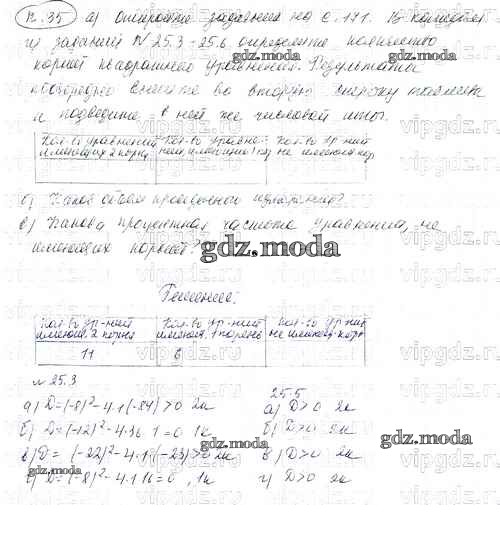 п.35 а) откройте задания на с. 171. В каждом
из заданий №25.3-25.6 определите количество
корней квадратного уравнения. Результаты
поочередно внесите во вторую строку таблицы
и подведите в ней же числовой итог.
Кол-во уравнений имеющих 2 корня
Кол-во уравне- ний, имеющих 1 кор
Кол-во ур-ний не имеющих кор
б) Каков объем проведенного измерения?
в) Какова процентная частота уравнений, не
имеющих корней?
gdz.moda
Решение:
Кол-во ур-ний имеющ. 2 корня
Кол-во ур-ний имеющ. 1 корень
Кол-во ур-ний не имеющ. корн
11 6
№25.3
а) D=(-8)²-4·1(-84)>0 2к
б) D=(-12)²-4·36·1=0 1к
в) D=(-22)²-4·1·(-23)>0 2к
г) D=(-8)²-4·1·16=0, 1к
25.5
а) D>0 2к
б) D>0 2к
в) D>0 2к
г) D>0 2к
gdz.moda
gdz.moda
gdz.moda
vipgdz.ru